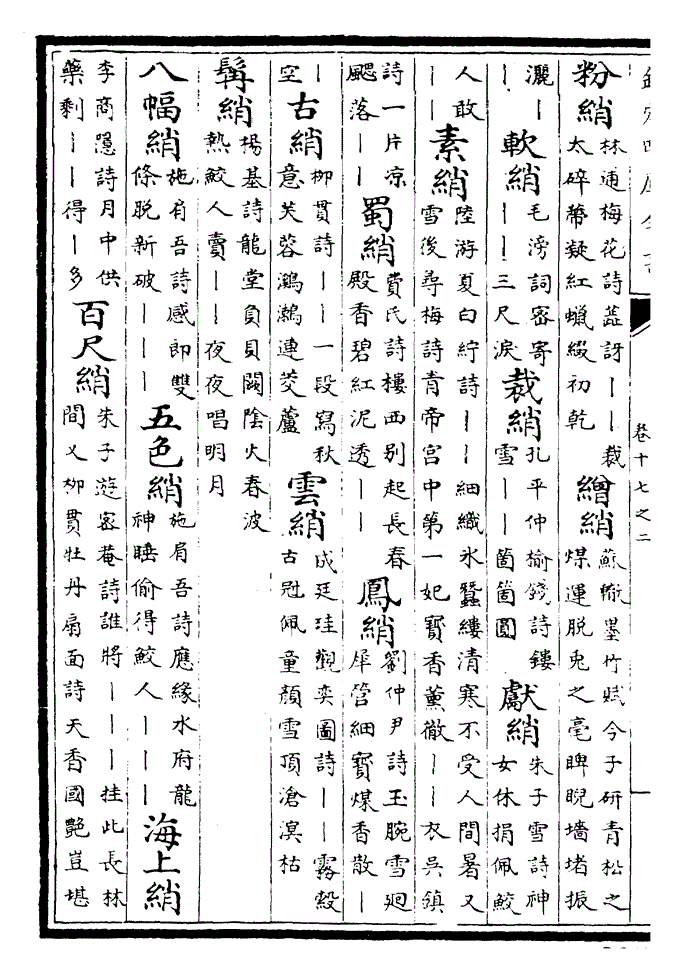 欽定四庫全書
卷十七之二
粉綃 林逋梅花詩蕋訝丨丨裁太碎蔕凝紅蠟綴初乾 繒綃 蘇轍墨竹賦今子研青松之煤運脱兎之毫睥睨墻堵振
灑丨丨 軟綃 毛滂詞密寄丨丨三尺淚 裁綃 孔平仲榆錢詩鏤雪丨丨箇箇圓 獻綃 朱子雪詩神女休捐佩鮫
人敢丨丨 素綃 陸游夏白紵詩丨丨細織氷蠶縷清寒不受人間暑又雪後尋梅詩青帝宫中第一妃寳香薰徹丨丨衣吳鎮
詩一片凉颸落丨丨 蜀綃 費氏詩樓西别起長春殿香碧紅泥透丨丨 鳳綃 劉仲尹詩玉腕雪廻犀管細寳煤香散丨
丨空 古綃 柳貫詩丨丨一段寫秋意芙蓉鸂鶒連芡蘆 雲綃 成廷珪觀奕圖詩丨丨霧縠古冠佩童顔雪頂滄溟枯
綃 楊基詩龍堂負貝闕陰火春波熱鮫人賣丨丨夜夜唱明月
八幅綃 施肩吾詩感郎雙條脱新破丨丨丨 五色綃 施肩吾詩應緣水府龍神睡偷得鮫人丨丨丨 海上綃
李商隱詩月中供藥剩丨丨得丨多 百尺綃 朱子遊密菴詩誰將丨丨丨挂此長林間又柳貫牡丹扇面詩天香國艷豈堪